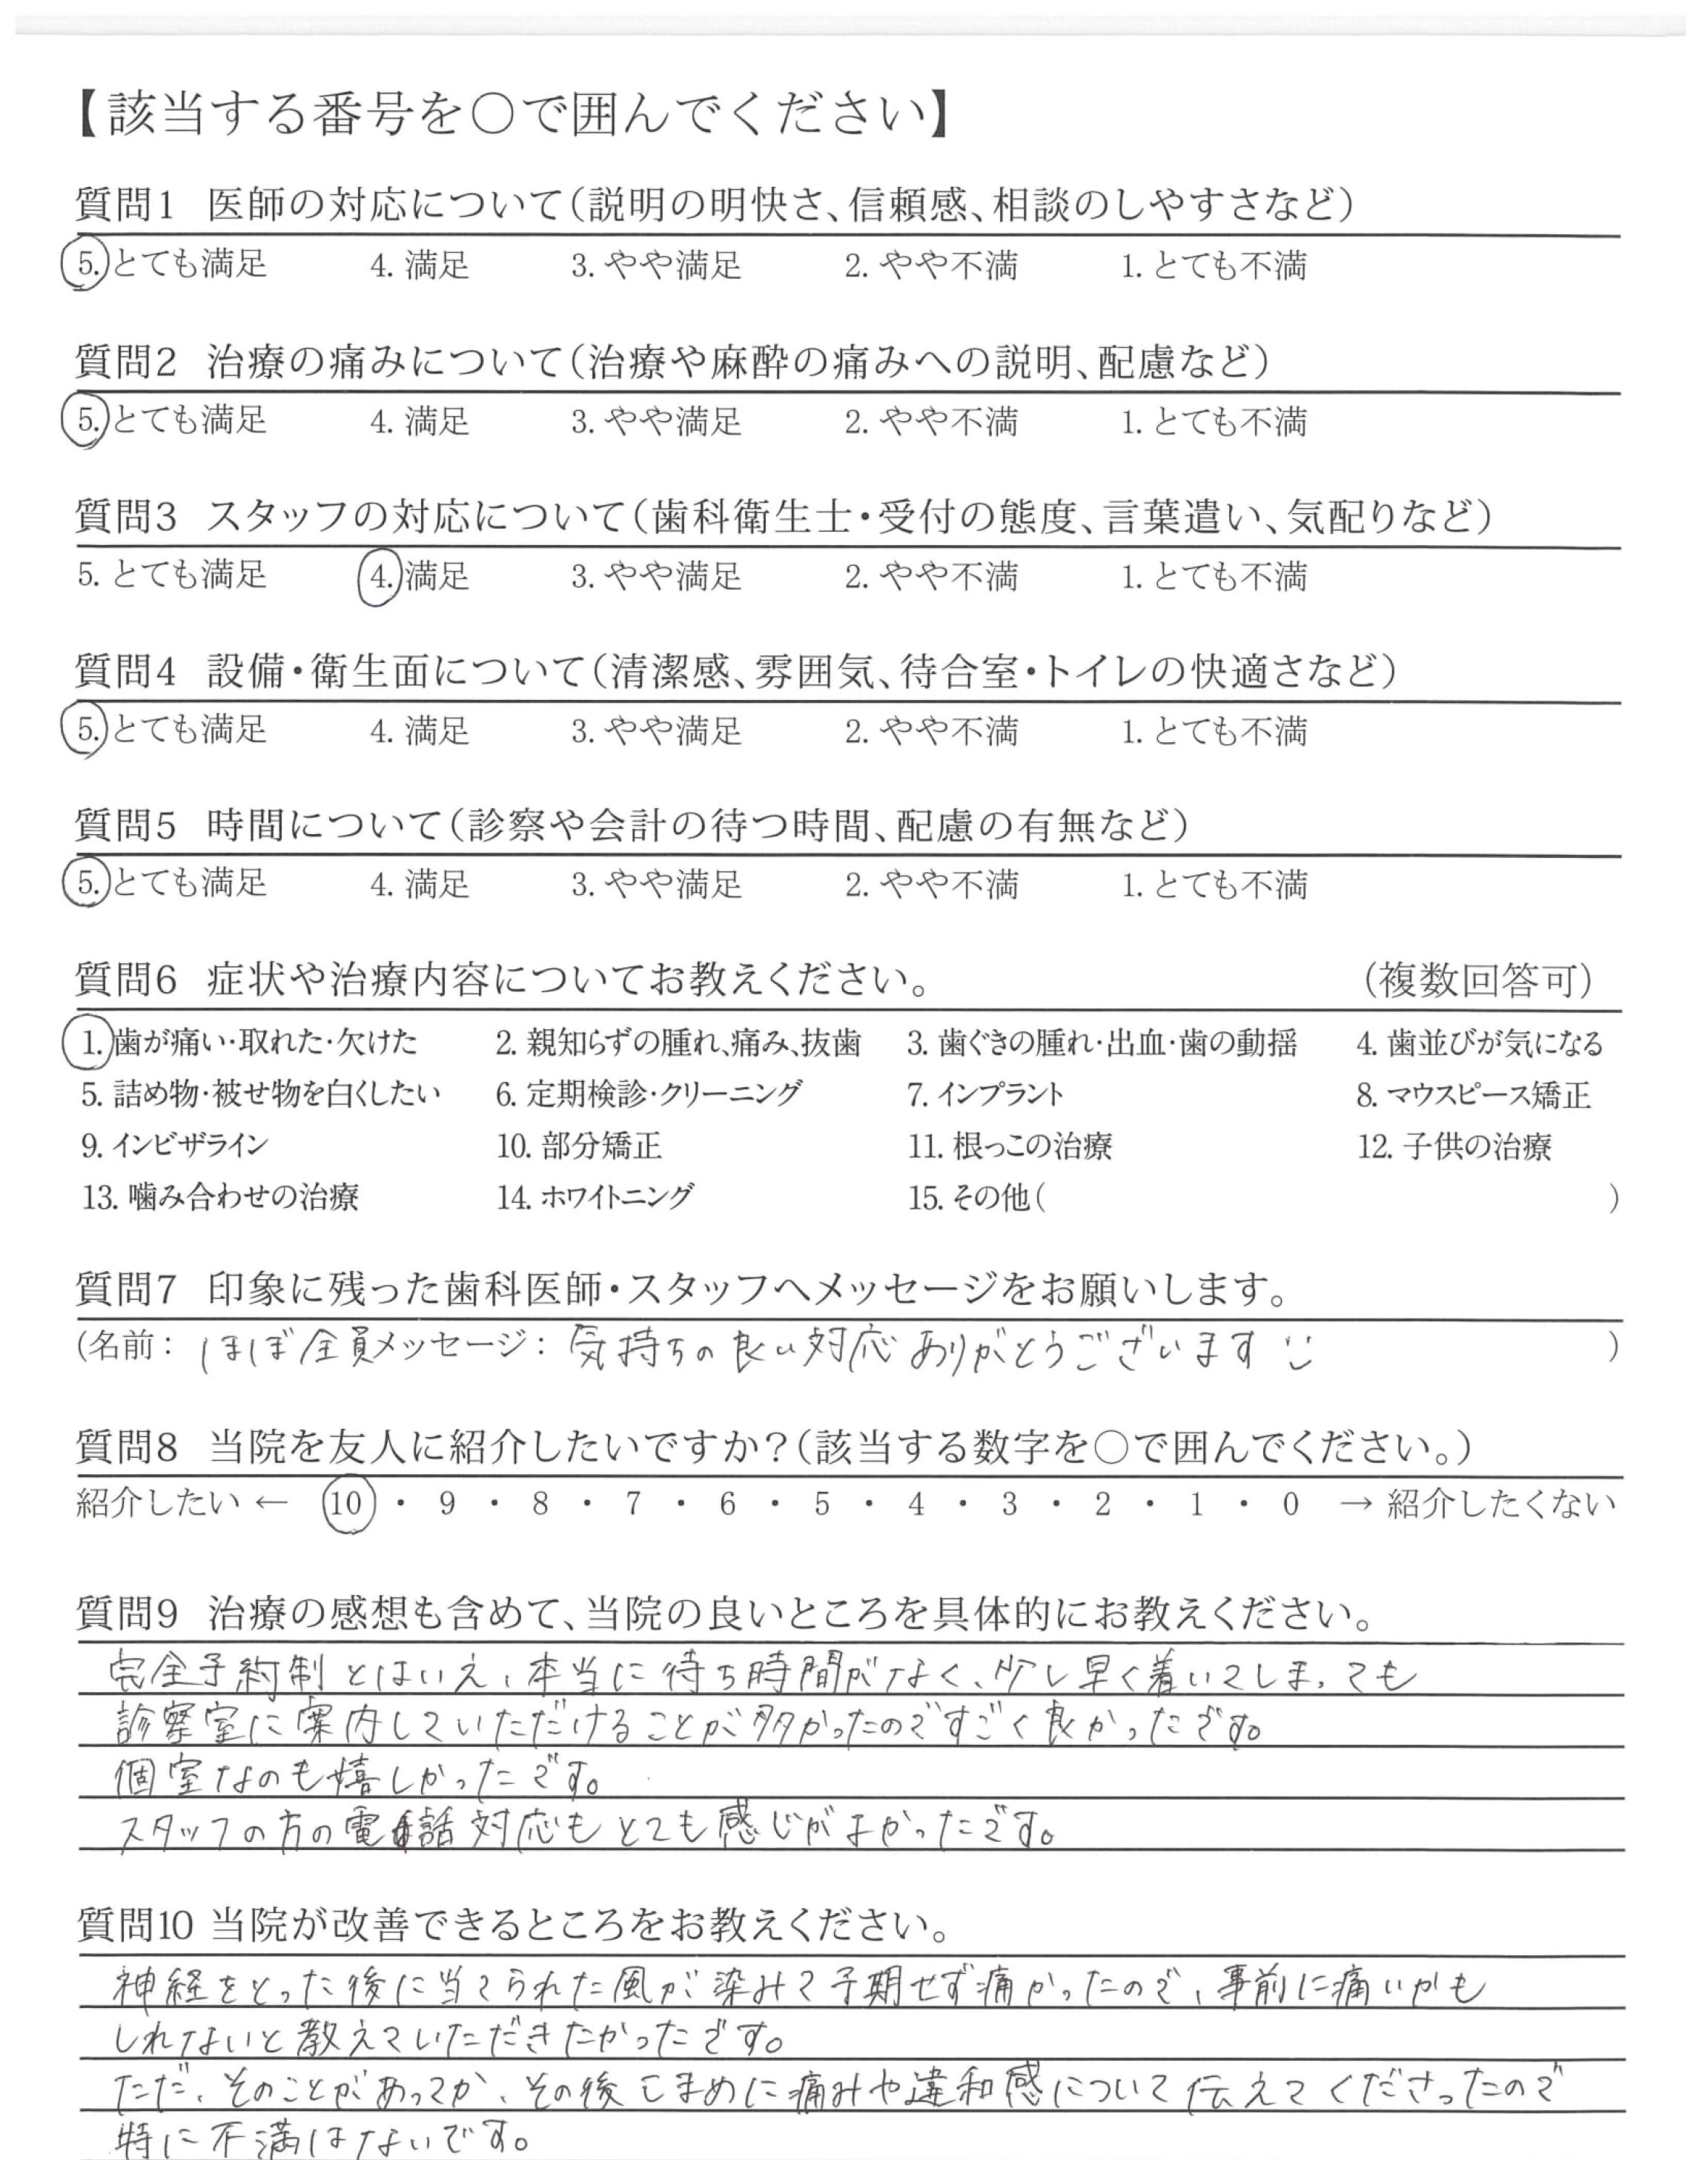 【該当する番号を○で囲んでください】
質問1 医師の対応について(説明の明快さ、信頼感、相談のしやすさなど)
5. とても満足 4. 満足 3. やや満足 2. やや不満 1. とても不満
質問2 治療の痛みについて(治療や麻酔の痛みへの説明、配慮など)
5. とても満足 4. 満足 3. やや満足 2. やや不満 1. とても不満
質問3 スタッフの対応について(歯科衛生士・受付の態度、言葉遣い、気配りなど)
5. とても満足 4. 満足 3. やや満足 2. やや不満 1. とても不満
質問4 設備・衛生面について(清潔感、雰囲気、待合室・トイレの快適さなど)
5. とても満足 4. 満足 3. やや満足 2. やや不満 1. とても不満
質問5 時間について(診察や会計の待つ時間、配慮の有無など)
5. とても満足 4. 満足 3. やや満足 2. やや不満 1. とても不満
質問6 症状や治療内容についてお教えください。 (複数回答可)
1. 歯が痛い・取れた・欠けた 2. 親知らずの腫れ、痛み、抜歯 3. 歯ぐきの腫れ・出血・歯の動揺 4. 歯並びが気になる
5. 詰め物・被せ物を白くしたい 6. 定期検診・クリーニング 7. インプラント 8. マウスピース矯正
9. インビザライン 10. 部分矯正 11. 根っこの治療 12. 子供の治療
13. 噛み合わせの治療 14. ホワイトニング 15. その他( )
質問7 印象に残った歯科医師・スタッフへメッセージをお願いします。
(名前: ほぼ全員 メッセージ: 気持ちの良い対応ありがとうございます )
質問8 当院を友人に紹介したいですか?(該当する数字を○で囲んでください。)
紹介したい ← 10 ・ 9 ・ 8 ・ 7 ・ 6 ・ 5 ・ 4 ・ 3 ・ 2 ・ 1 ・ 0 → 紹介したくない
質問9 治療の感想も含めて、当院の良いところを具体的にお教えください。
完全予約制とはいえ、本当に待ち時間がなく、少し早く着いてしまっても
診察室に案内していただけることが多かったのですごく良かったです。
個室なのも嬉しかったです。
スタッフの方の電話対応もとても感じがよかったです。
質問10 当院が改善できるところをお教えください。
神経をとった後に当てられた風が染みて予期せず痛かったので、事前に痛いかも
しれないと教えていただきたかったです。
ただ、そのことがあってか、その後こまめに痛みや違和感について伝えてくださったので
特に不満はないです。